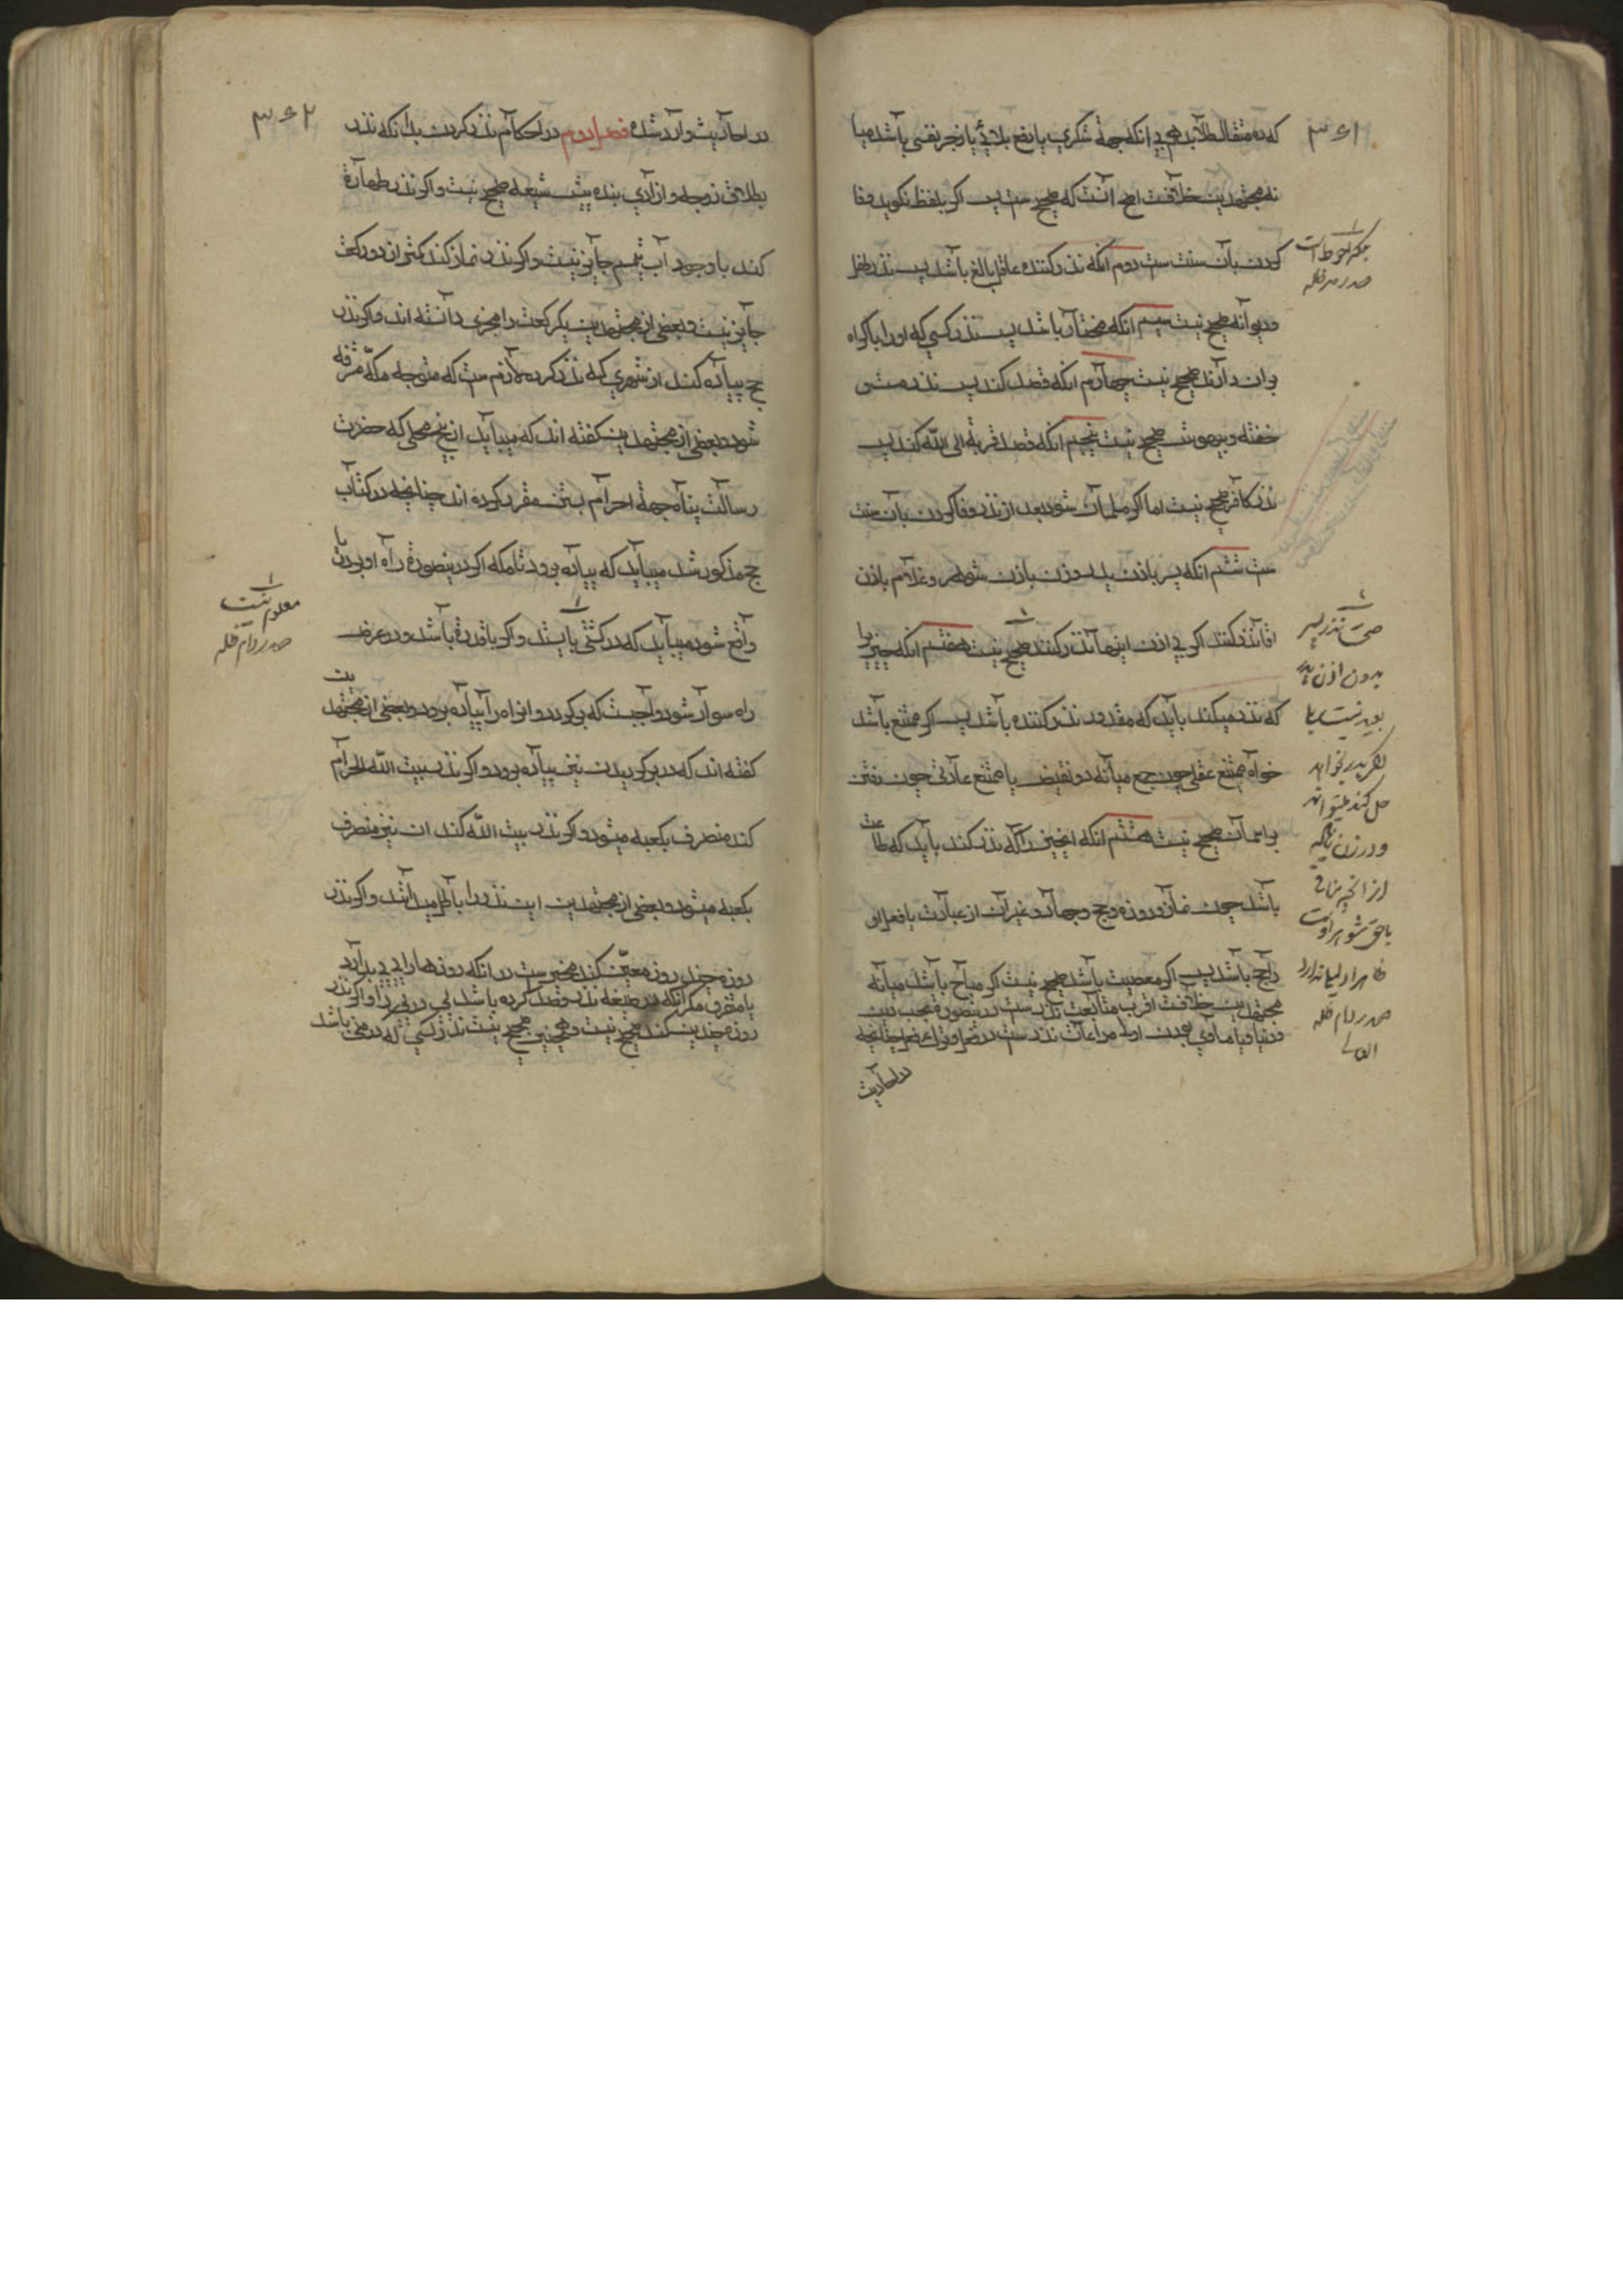 ۳۶۱
که ده مثقال طلا بدهم بی انکه جهة شکری یا دفع بلائی یا زجر نفسی باشد میا
نه مجتهدین خلافست اصح آنست که صحیح ست پس اکر بلفظ نکوید وفا
کردن بآن سنت ست دوم انکه نذر کننده عاقل بالغ باشد پس نذر طفل
ودیوانه صحیح نیست سیم انکه مختار باشد پس نذر کسی که او را باکراه
بران دارند صحیح نیست چهارم انکه قصد کند پس نذر مست و
خفته وبیهوش صحیح نیست پنجم انکه قصد قربة الی الله کند پس
نذر کافر صحیح نیست اما اکر مسلمان شود بعد از نذر وفا کردن بآن سنت
ست ششم انکه پسر باذن پدر وزن باذن شوهر وغلام باذن
اقا نذر کنند اکر بی اذن اینها نذر کنند صحیح نیست هفتم انکه چیزیرا
که نذر میکند باید که مقدور نذر کننده باشد پس اکر ممتنع باشد
خواه ممتنع عقلی چون جمع میانه دو نقیض یا ممتنع عادتی چون رفتن
براسمان صحیح نیست هشتم انکه انچیز را که نذر کند باید که طاعت
باشد چون نماز وروزه وحج وجهاد وغیر آن از عبادت یا فعل او
راجح باشد پس اکر معصیت باشد صحیح نیست اکر مباح باشد میانه
مجتهدین خلافست اقرب متابعت نذرست
ودنیا ویا مساوی بودن اولی مراعات نذرست در فعل وترک چنانچه
در احادیث
بلکه احوط است
صدر دام ظله
صحت نذر پسر
بدون اذن پدر
بعید نیست بلی
اکر پدر بخواهد
حل کند میتواند
ودر زن بلکه
از انچه منافی
با حق شوهر است
ظاهرا
صدر دام ظله
العالی
۳۶۲
در احادیث وارد شده فصل دوم در احکام نذر کردن بدانکه نذر
بطلاق زوجه وازادی بنده پیش شیعه صحیح نیست واکر نذر طهارة
کند با وجود آب تیمم جایز نیست واکر نذر نماز کند کمتر از دو رکعت
جایز نیست وبعضی از مجتهدین یکرکعت را مجزی دانسته اند واکر نذر
حج پیاده کند از شهری که نذر کرده لازم ست که متوجه مکّه مشرفه
شود وبعضی از مجتهدین کفته اند که میباید از محلی که حضرت
رسالت پناه جهة احرام بستن مقرر کرده اند چنانچه در کتاب
حج مذکور شد میباید که پیاده برود تا مکه اکر درینصورة راه او بدریا
واقع شود میباید که در کشتی بایستد واکر با قدرة باشد ودر عرض
راه سوار شود واجبست که برکردد وانراه را پیاده برود وبعضی از مجتهدین
کفته اند که در برکردیدن نیز پیاده برود واکر نذر بیت الله الحرام
کند منصرف بکعبه میشود واکر نذر بیت الله کند ان نیز منصرف
بکعبه میشود وبعضی از مجتهدین این نذر را باطل میدانند واکر نذر
روزه چند روز معیّن کند مخیر ست در انکه روزها را پی در پی بدارد
یا متفرق مکر انکه در صیغه نذر قصد کرده باشد پی در پی را واکر نذر
روزه عیدین کند صحیح نیست وهمچنین صحیح نیست نذر کسی که در منی باشد
معلوم نیست
صدر دام ظله